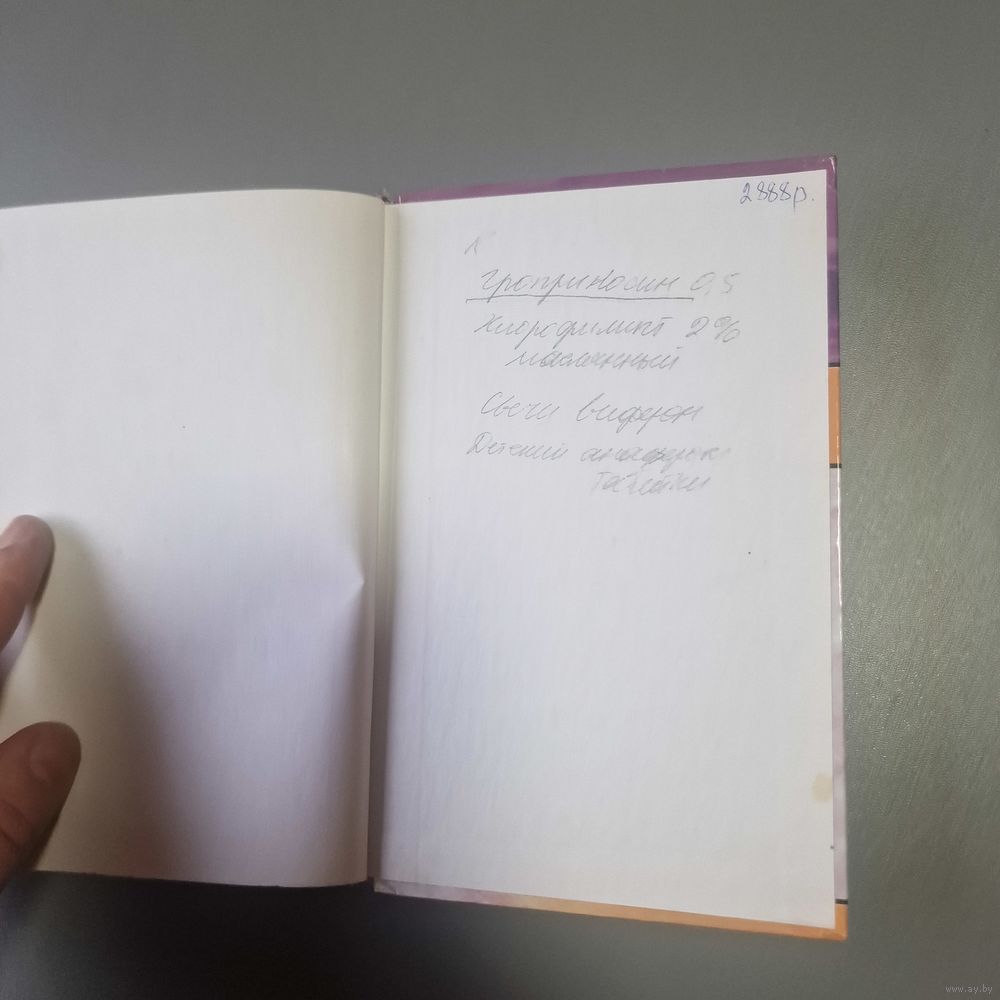 2888р.
гроприносин 0,5
Хлорофиллипт 2%
масляный
Свечи виферон
Детский анаферон
Таблетки
www.ay.by